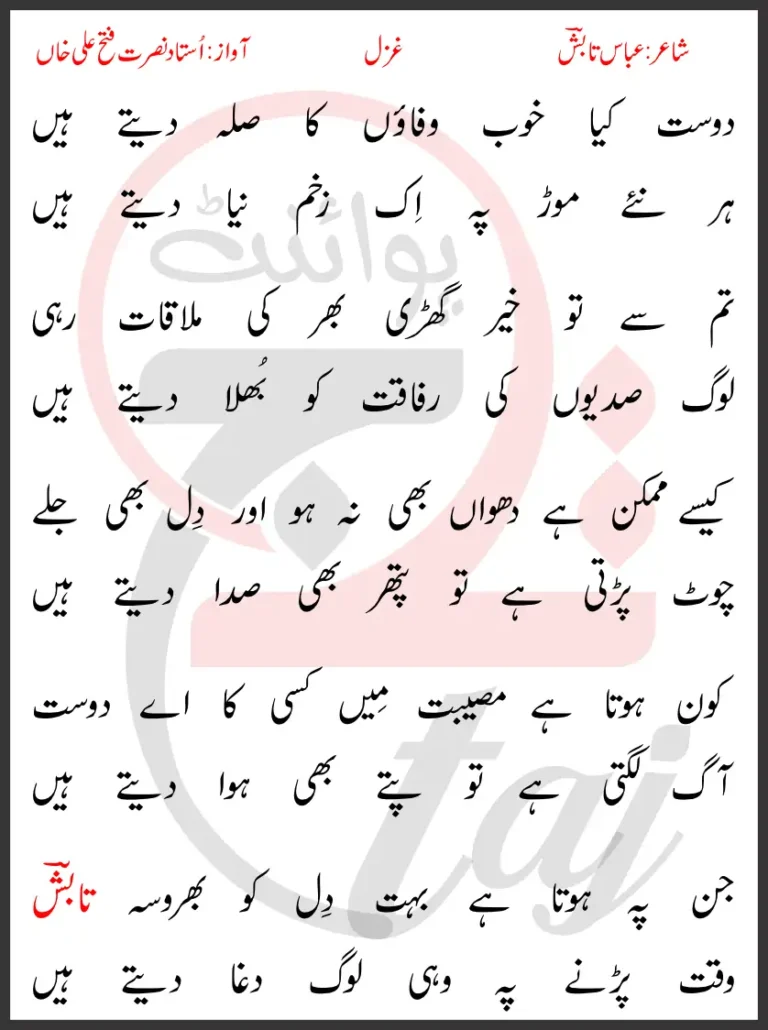 شاعر: عباس تابشؔ غزل آواز: اُستاد نصرت فتح علی خاں
دوست کیا خوب وفاؤں کا صلہ دیتے ہیں
ہر نئے موڑ پہ اِک زخم نیا دیتے ہیں
تم سے تو خیر گھڑی بھر کی ملاقات رہی
لوگ صدیوں کی رفاقت کو بُھلا دیتے ہیں
کیسے ممکن ہے دھواں بھی نہ ہو اور دِل بھی جلے
چوٹ پڑتی ہے تو پتھر بھی صدا دیتے ہیں
کون ہوتا ہے مصیبت مِیں کسی کا اے دوست
آگ لگتی ہے تو پتے بھی ہوا دیتے ہیں
جن پہ ہوتا ہے بہت دِل کو بھروسہ تابشؔ
وقت پڑنے پہ وہی لوگ دغا دیتے ہیں
پوائنٹ
taj